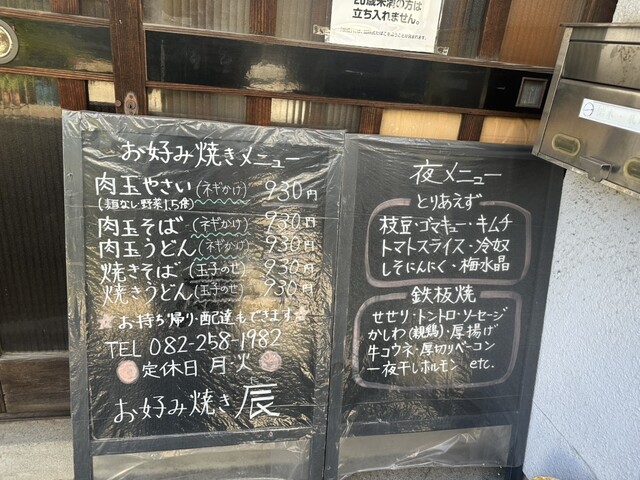 20歳未満の方は
立ち入れません。
お好み焼きメニュー
肉玉やさい(ネギかけ) 930円
(麺なし野菜1.5倍)
肉玉そば(ネギかけ) 930円
肉玉うどん(ネギかけ) 930円
焼きそば(玉子のせ) 930円
焼きうどん(玉子のせ) 930円
お持ち帰り・配達もできます
TEL 082-258-1982
定休日 月 火
お好み焼き 辰
夜メニュー
とりあえず
枝豆・ゴマキュー・キムチ
トマトスライス・冷奴
しそにんにく・梅水晶
鉄板焼
せせり・トントロ・ソーセージ
かしわ(親鶏)・厚揚げ
牛コウネ・厚切りベーコン
一夜干しホルモン etc.